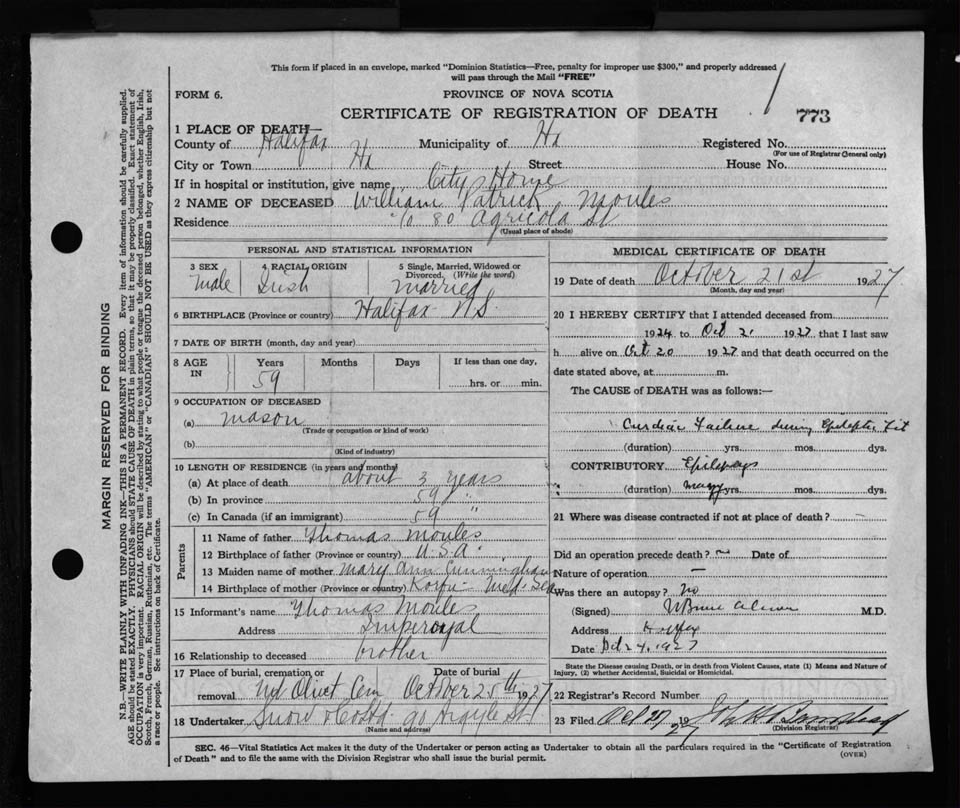 This form if placed in an envelope, marked "Dominion Statistics—Free, penalty for improper use $300," and properly addressed
will pass through the Mail "FREE"
FORM 6.
PROVINCE OF NOVA SCOTIA
CERTIFICATE OF REGISTRATION OF DEATH
773
1 PLACE OF DEATH—
County of Halifax Municipality of Hx Registered No.
(For use of Registrar General only)
City or Town Hx Street House No.
If in hospital or institution, give name City Home
2 NAME OF DECEASED William Patrick Moules
Residence c/o 80 Agricola St
(Usual place of abode)
PERSONAL AND STATISTICAL INFORMATION
3 SEX 4 RACIAL ORIGIN 5 Single, Married, Widowed or
Divorced. (Write the word)
Male Irish Married
6 BIRTHPLACE (Province or country) Halifax N.S.
7 DATE OF BIRTH (month, day and year)
8 AGE IN Years Months Days If less than one day,
59 hrs. or min.
9 OCCUPATION OF DECEASED
(a) Mason
(Trade or occupation or kind of work)
(b)
(Kind of industry)
10 LENGTH OF RESIDENCE (in years and months)
(a) At place of death about 3 years
(b) In province 59 "
(c) In Canada (if an immigrant) 59 "
Parents
11 Name of father Thomas Moules
12 Birthplace of father (Province or country) U.S.A.
13 Maiden name of mother Mary Ann Cunningham
14 Birthplace of mother (Province or country) Korfu - Med. Sea
15 Informant's name Thomas Moules
Address Imperoyal
16 Relationship to deceased brother
17 Place of burial, cremation or removal Date of burial
Mt Olivet Cem October 25th 1927
18 Undertaker Snow & Co Ltd 90 Argyle St.
(Name and address)
MEDICAL CERTIFICATE OF DEATH
19 Date of death October 21st 1927
(Month, day and year)
20 I HEREBY CERTIFY that I attended deceased from
1924 to Oct 21 1927 that I last saw
h alive on Oct 20 1927 and that death occurred on the
date stated above, at m.
The CAUSE of DEATH was as follows:—
Cardiac Failure during Epileptic Fit
(duration) yrs. mos. dys.
CONTRIBUTORY Epilepsy
(duration) many yrs. mos. dys.
21 Where was disease contracted if not at place of death? —
Did an operation precede death? no Date of
Nature of operation —
Was there an autopsy? No
(Signed) M.D.
Address Halifax
Date Oct 24, 1927
State the Disease causing Death, or in death from Violent Causes, state (1) Means and Nature of
Injury, (2) whether Accidental, Suicidal or Homicidal.
22 Registrar's Record Number
23 Filed Oct 27 1927
(Division Registrar)
SEC. 46—Vital Statistics Act makes it the duty of the Undertaker or person acting as Undertaker to obtain all the particulars required in the "Certificate of Registration
of Death" and to file the same with the Division Registrar who shall issue the burial permit.
(OVER)
MARGIN RESERVED FOR BINDING
N.B.—WRITE PLAINLY WITH UNFADING INK—THIS IS A PERMANENT RECORD. Every item of information should be carefully supplied.
AGE should be stated EXACTLY. PHYSICIANS should STATE CAUSE OF DEATH in plain terms, so that it may be properly classified. Exact statement of
OCCUPATION is very important. RACIAL ORIGIN will be described by stating to what people or tongue the deceased person belonged, whether English, Irish,
Scotch, French, German, Russian, Ruthenian, etc. The terms "AMERICAN" or "CANADIAN" SHOULD NOT BE USED as they express citizenship but not
a race or people. See instructions on back of Certificate.